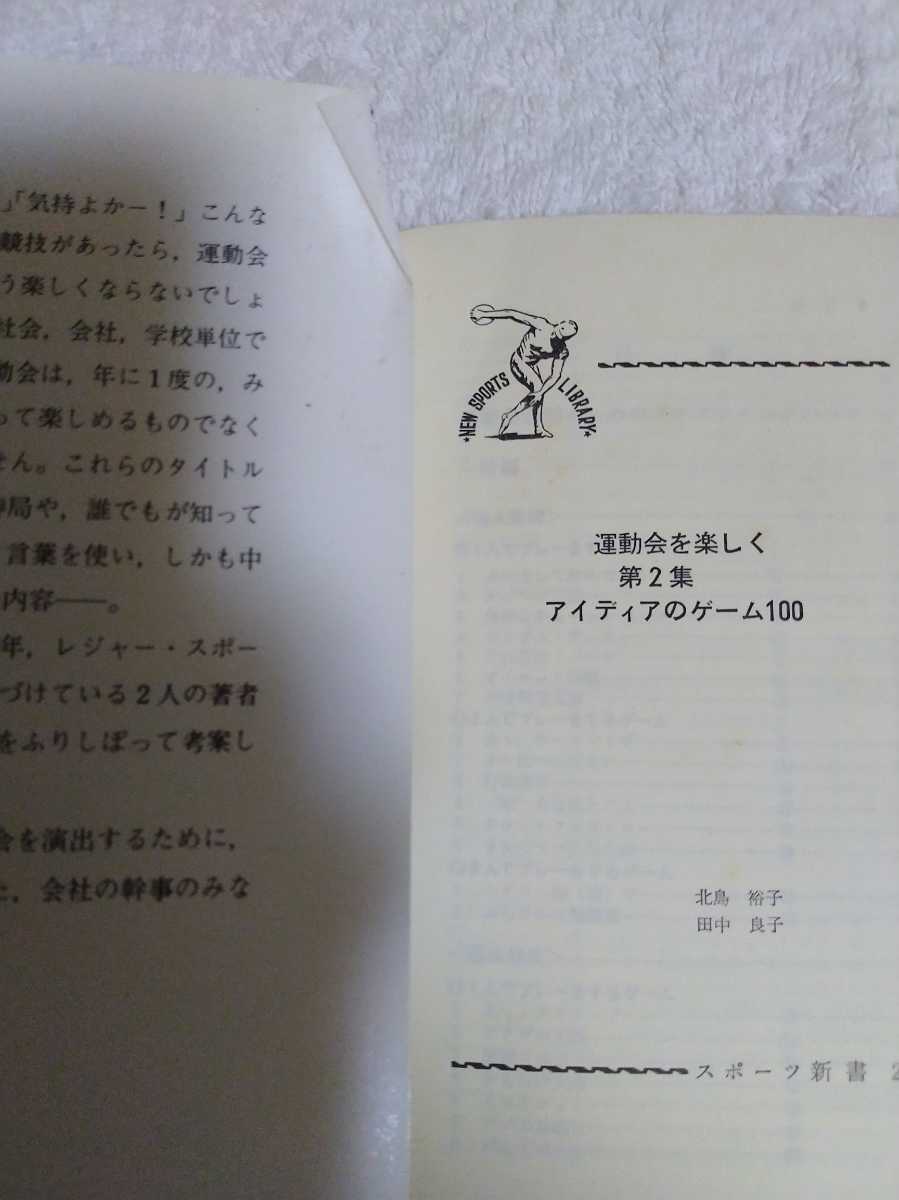 」「気持よかー！」こんな
競技があったら，運動会
う楽しくならないでしょ
社会，会社，学校単位で
動会は，年に1度の，み
って楽しめるものでなく
せん。これらのタイトル
局や，誰でもが知って
言葉を使い，しかも中
内容――。
年，レジャー・スポー
づけている2人の著者
をふりしぼって考案し
会を演出するために，
，会社の幹事のみな
NEW SPORTS LIBRARY
運動会を楽しく
第2集
アイディアのゲーム100
北島 裕子
田中 良子
スポーツ新書 2